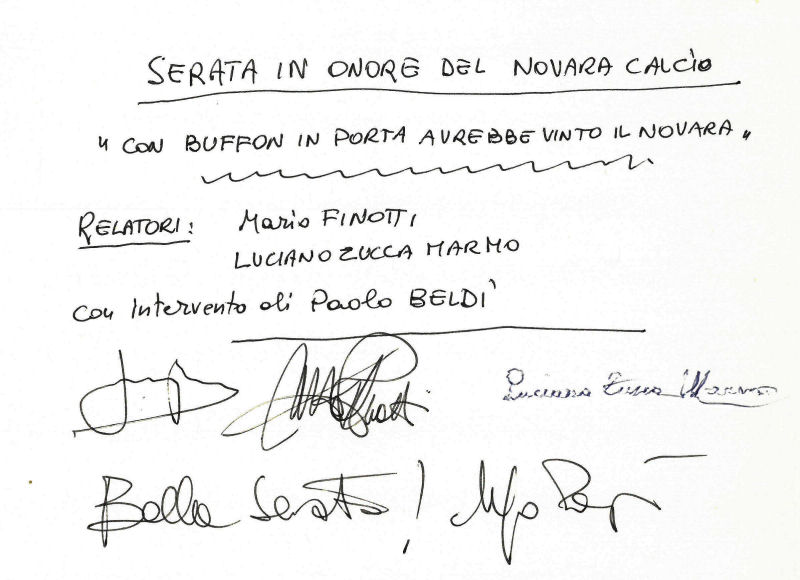 SERATA IN ONORE DEL NOVARA CALCIO
" CON BUFFON IN PORTA AVREBBE VINTO IL NOVARA "
RELATORI: Mario FINOTTI
LUCIANO ZUCCA MARMO
con intervento di Paolo BELDI'
Luciano Zucca Marmo
Bella Serata!